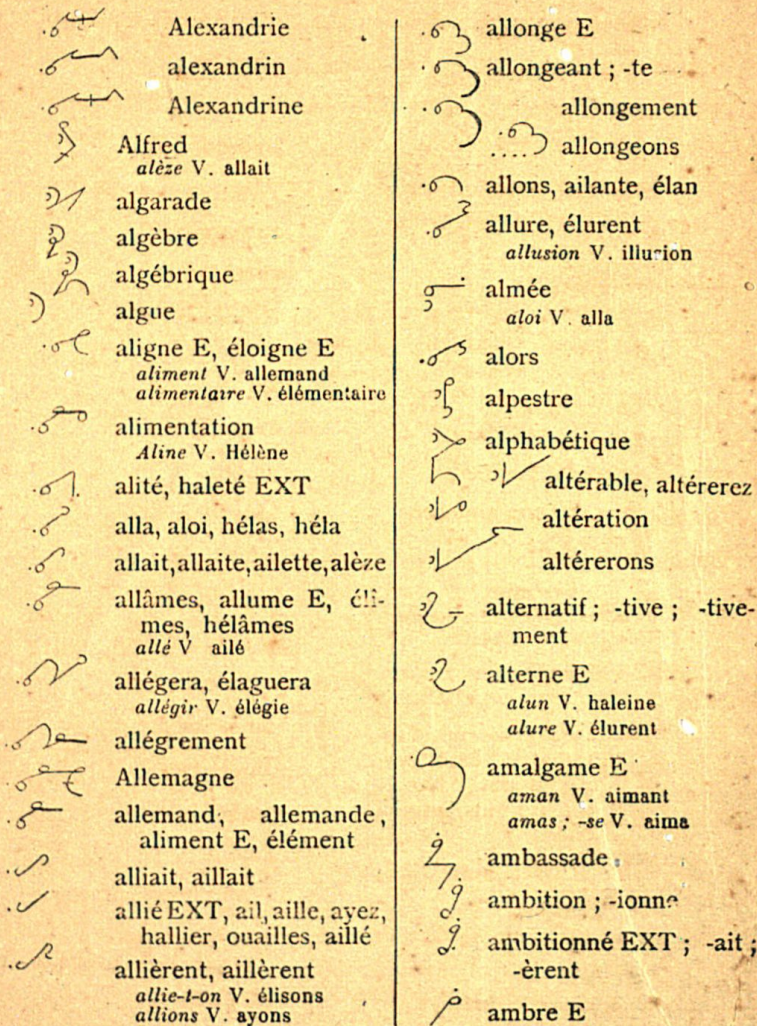 Alexandrie
alexandrin
Alexandrine
Alfred
alèze V. allait
algarade
algèbre
algébrique
algue
aligne E, éloigne E
aliment V. allemand
alimentaire V. élémentaire
alimentation
Aline V. Hélène
alité, haleté EXT
alla, aloi, hélas, héla
allait, allaite, ailette, alèze
allâmes, allume E, éli-
mes, hélâmes
allé V ailé
allégera, élaguera
allégir V. élégie
allégrement
Allemagne
allemand, allemande,
aliment E, élément
alliait, aillait
allié EXT, ail, aille, ayez,
hallier, ouailles, aillé
allièrent, aillèrent
allie-t-on V. élisons
allions V. ayons
allonge E
allongeant ; -te
allongement
allongeons
allons, ailante, élan
allure, élurent
allusion V. illusion
almée
aloi V. alla
alors
alpestre
alphabétique
altérable, altérerez
altération
altérerons
alternatif ; -tive ; -tive-
ment
alterne E
alun V. haleine
alure V. élurent
amalgame E
aman V. aimant
amas ; -se V. aima
ambassade
ambition ; -ionne
ambitionné EXT ; -ait ;
-èrent
ambre E